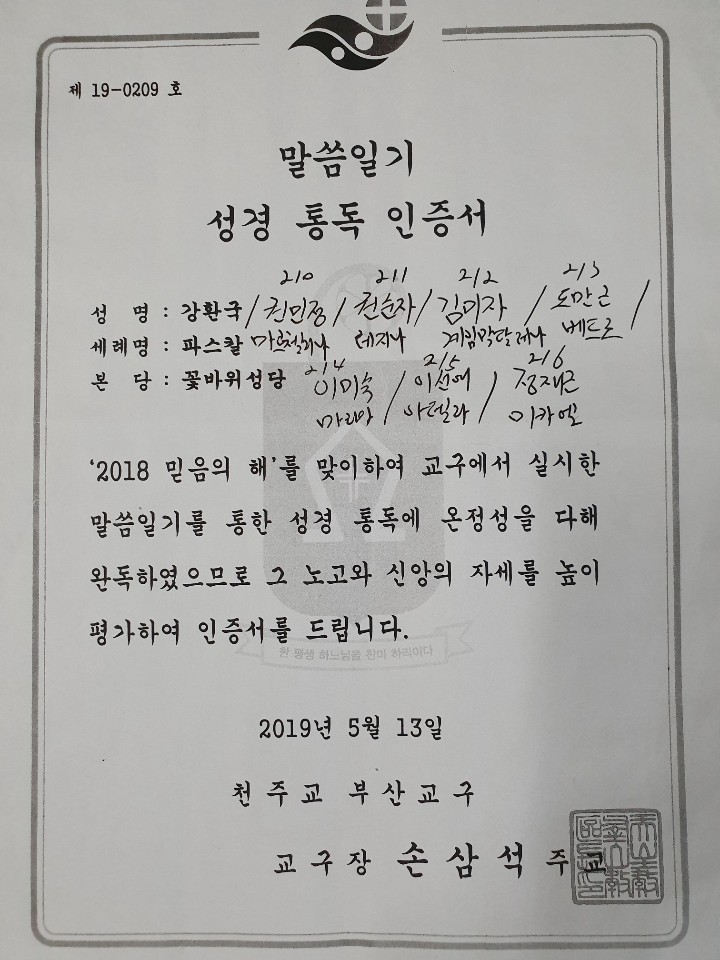 제 19-0209 호
말씀일기
성경 통독 인증서
210 211 212 213
성 명 : 강환국 / 권민정 / 권순자 / 김미자 / 도만근 /
세례명 : 파스칼 마르첼리나 레지나 막달레나 베드로
214 215 216
본 당 : 꽃바위성당 이미숙 / 이선애 / 정재근
마리아 아델라 미카엘
'2018 믿음의 해'를 맞이하여 교구에서 실시한
말씀일기를 통한 성경 통독에 온정성을 다해
완독하였으므로 그 노고와 신앙의 자세를 높이
평가하여 인증서를 드립니다.
한 평생 하느님을 찬미 하리이다
2019년 5월 13일
천 주 교 부 산 교 구
교 구 장 손 삼 석 주 교